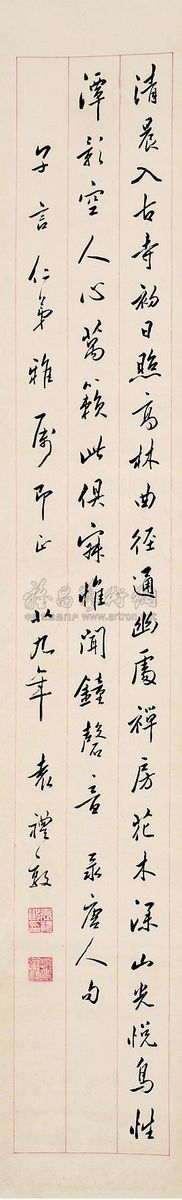 清晨入古寺初日照高林曲径通幽處禪房花木深山光悦鳥性
潭影空人心萬籟此俱寂惟聞鐘磬音 录唐人句
子言仁弟雅属即正 廿九年 袁禮敦